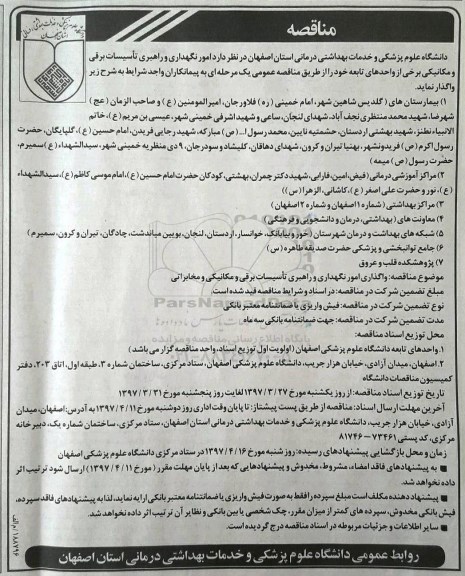 مناقصه
دانشگاه علوم پزشکی و خدمات بهداشتی درمانی استان اصفهان در نظر دارد امور نگهداری و راهبری تأسیسات برقی
و مکانیکی برخی از واحدهای تابعه خود را از طریق مناقصه عمومی یک مرحله ای به پیمانکاران واجد شرایط به شرح زیر
واگذار نماید.
۱) بیمارستان های ( گلدیس شاهین شهر، امام خمینی (ره) فلاورجان، امیرالمومنین (ع) و صاحب الزمان (عج)
شهرضا، شهید محمد منتظری نجف آباد، شهدای لنجان، ساعی و شهید اشرفی خمینی شهر، عیسی بن مریم (ع)، خاتم
الانبیاء نطنز، شهید بهشتی اردستان، حشمتیه نایین، محمد رسول ا... (ص) مبارکه، شهید رجایی فریدن، امام حسین (ع)، گلپایگان، حضرت
رسول اکرم (ص) فریدونشهر، بهنیا تیران و کرون، شهدای دهاقان، کلیشاد و سودرجان، ۹ دی منظریه خمینی شهر، سیدالشهداء (ع) سمیرم،
حضرت رسول (ص) میمه)
۲) مراکز آموزشی درمانی (فیض، امین، فارابی، شهید دکتر چمران، بهشتی، کودکان حضرت امام حسین (ع)، امام موسی کاظم (ع)، سیدالشهداء
(ع)، نور و حضرت علی اصغر (ع)، کاشانی، الزهرا (س))
۳) مراکز بهداشتی ( شماره ۱ اصفهان و شماره ۲ اصفهان )
۴) معاونت های ( بهداشتی، درمان و دانشجویی و فرهنگی)
۵) شبکه های بهداشت و درمان شهرستان (خور و بیابانک، خوانسار، اردستان، لنجان، بویین میاندشت، چادگان، تیران و کرون، سمیرم )
۶) جامع توانبخشی و پزشکی حضرت صدیقه طاهره (س)
۷) پژوهشکده قلب و عروق
موضوع مناقصه: واگذاری امور نگهداری و راهبری تأسیسات برقی و مکانیکی و مخابراتی
مبلغ تضمین شرکت در مناقصه: در اسناد و شرایط مناقصه قید شده است.
نوع تضمین شرکت در مناقصه: فیش واریزی یا ضمانتنامه معتبر بانکی
مدت تضمین شرکت در مناقصه: جهت ضمانتنامه بانکی سه ماه
محل توزیع اسناد مناقصه:
۱. واحدهای تابعه دانشگاه علوم پزشکی اصفهان (اولویت اول توزیع اسناد، واحد مناقصه گزار می باشد )
۲. اصفهان، میدان آزادی، خیابان هزار جریب، دانشگاه علوم پزشکی اصفهان، ستاد مرکزی، ساختمان شماره ۳، طبقه اول، اتاق ۲۰۳، دفتر
کمیسیون مناقصات دانشگاه
تاریخ توزیع اسناد مناقصه: از روز یکشنبه مورخ ۱۳۹۷/۳/۲۷ لغایت روز پنجشنبه مورخ ۱۳۹۷/۳/۳۱
آخرین مهلت ارسال اسناد: مناقصه از طریق پست پیشتاز: تا پایان وقت اداری روز دوشنبه مورخ ۱۳۹۷/۴/۱۱ به آدرس: اصفهان، میدان
آزادی، خیابان هزار جریب، دانشگاه علوم پزشکی و خدمات بهداشتی درمانی استان اصفهان، ستاد مرکزی، ساختمان شماره یک، دبیرخانه
مرکزی، کد پستی ۷۳۴۶۱-۸۱۷۴۶
زمان و محل بازگشایی پیشنهادهای رسیده: روز شنبه مورخ ۱۳۹۷/۴/۱۶ در ستاد مرکزی دانشگاه علوم پزشکی اصفهان
به پیشنهادهای فاقد امضاء، مشروط، مخدوش و پیشنهادهایی که بعد از پایان مهلت مقرر ( مورخ ۱۳۹۷/۴/۱۱ ) ارسال شود ترتیب اثر
داده نخواهد شد.
پیشنهاد دهنده مکلف است مبلغ سپرده را فقط به صورت فیش واریزی یا ضمانتنامه معتبر بانکی ارایه نماید، لذا به پیشنهادهای فاقد سپرده،
فیش بانکی مخدوش، سپرده های کمتر از میزان مقرر، چک شخصی یا بین بانکی و نظایر آن ترتیب اثر داده نخواهد شد.
سایر اطلاعات و جزئیات مربوطه در اسناد مناقصه درج گردیده است.
روابط عمومی دانشگاه علوم پزشکی و خدمات بهداشتی درمانی استان اصفهان